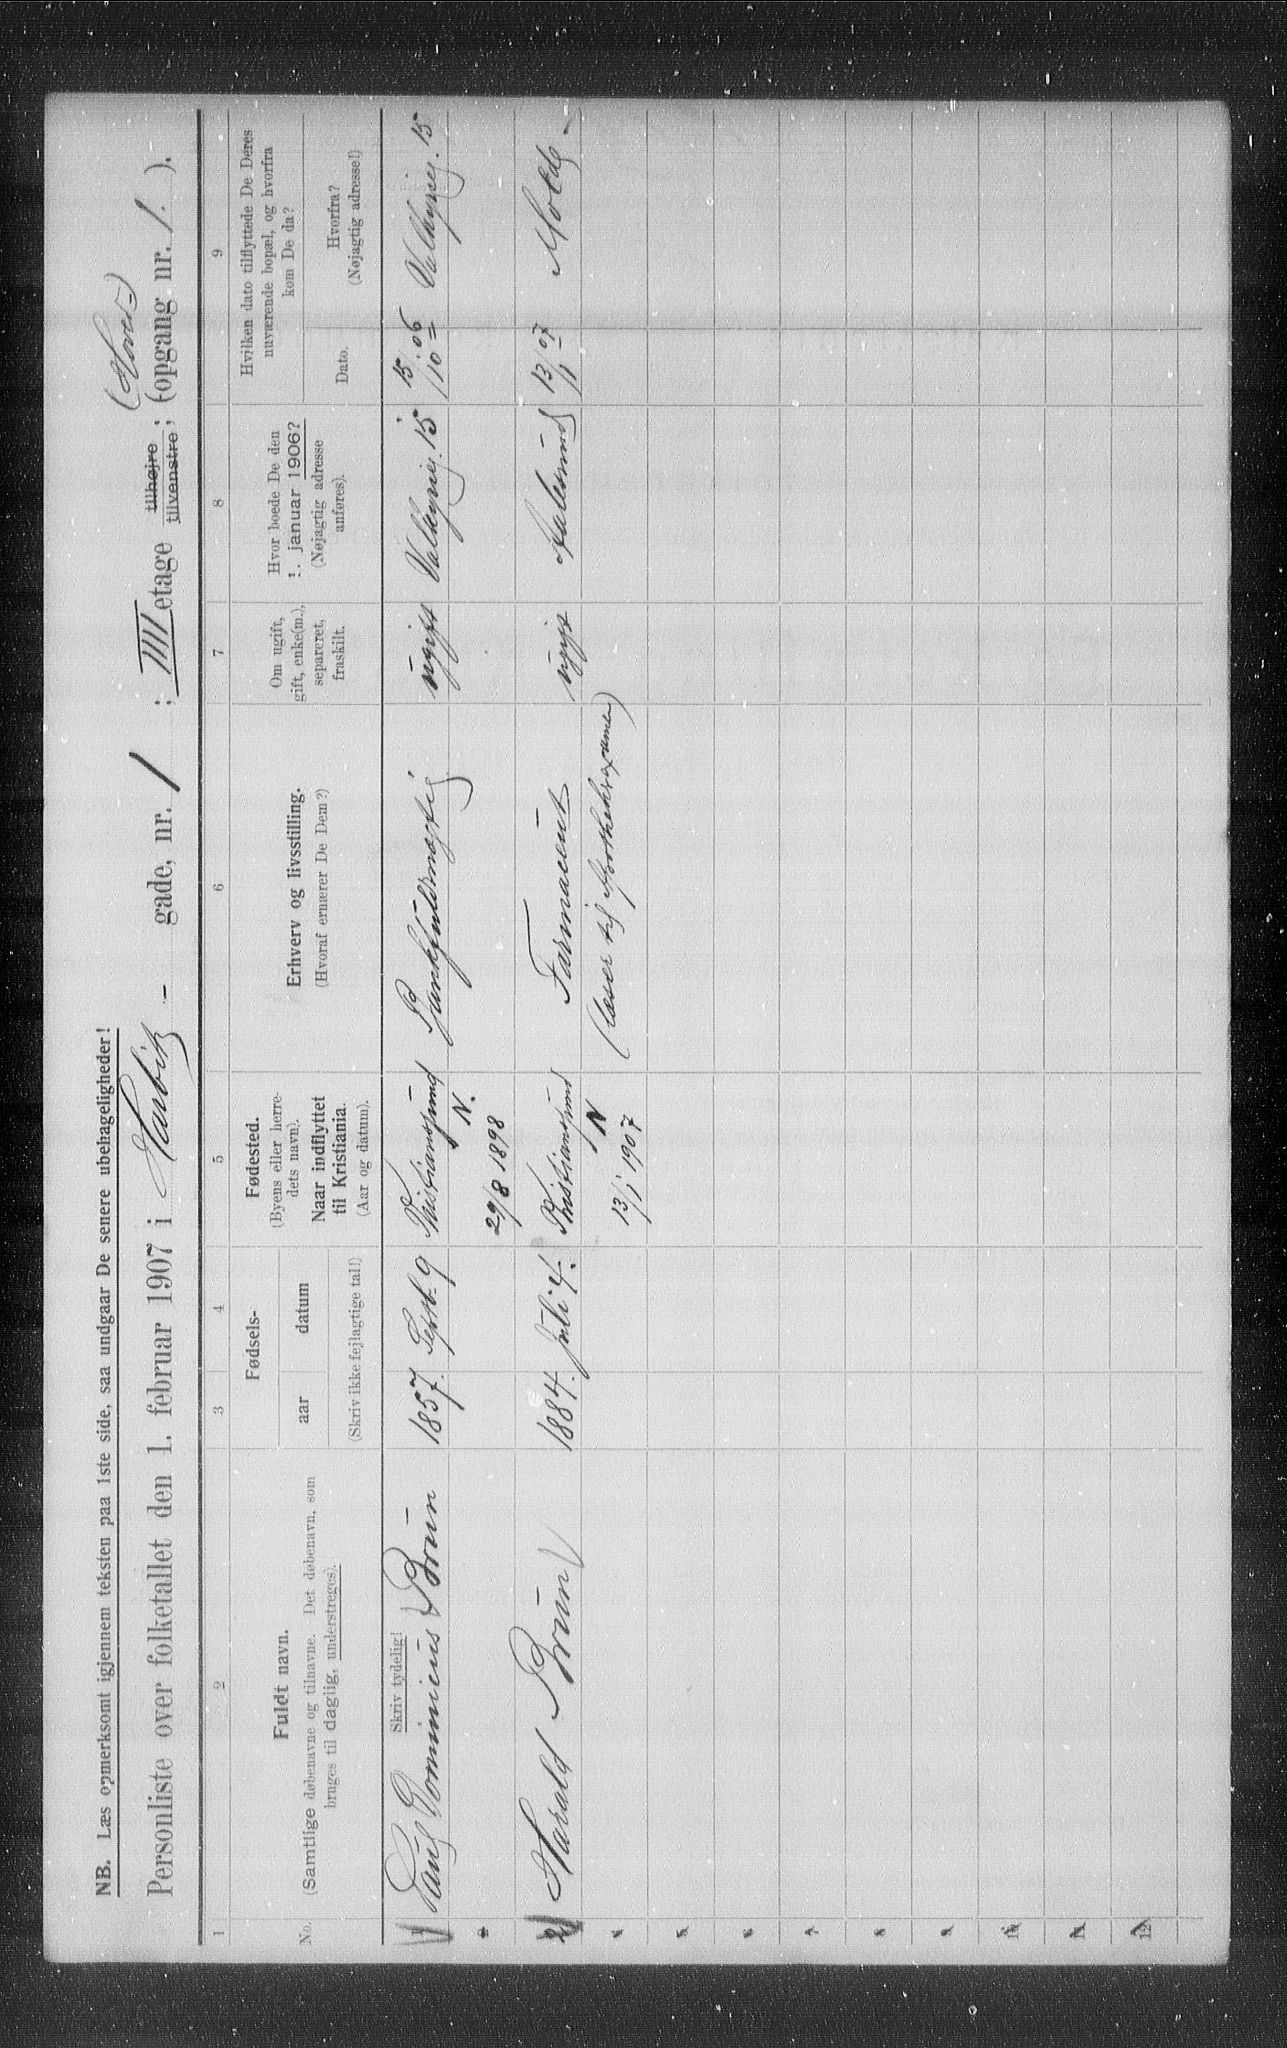 NB. Læs opmerksomt igjennem teksten paa 1ste side, saa undgaar De senere ubehageligheder!
(Hoved)
Personliste over folketallet den 1. februar 1907 i Harbitz - gade, nr. 1 ; IIII etage tilhøjre tilvenstre; (opgang nr. 1. ).
1 2 3 4 5 6 7 8 9
No.
Fuldt navn.
(Samtlige døbenavne og tilnavne. Det døbenavn, som
bruges til daglig, understreges).
Skriv tydelig!
Fødsels-
aar datum
(Skriv ikke fejlagtige tal!)
Fødested.
(Byens eller herre-
dets navn).
Naar indflyttet
til Kristiania.
(Aar og datum).
Erhverv og livsstilling.
(Hvoraf ernærer De Dem?)
Om ugift,
gift, enke(m.),
separeret,
fraskilt.
Hvor boede De den
1. januar 1906?
(Nøjagtig adresse
anføres).
Hvilken dato tilflyttede De Deres
nuværende bopæl, og hvorfra
kom De da?
Dato.
Hvorfra?
(Nøjagtig adresse!)
1 Paul Dominicus Brun 1857. Septb. 9 Kristianssund Bankfuldmægtig ugift Valkyrieg. 15 15/10 06 Valkyrieg. 15
N.
29/8 1898
2 Harald Brun 1884. Juli 4. Kristianssund Farmaceut ugift Aalesund 13/1 07 Molde
N (læser til Apotheksexamen)
13/1 1907
4
5
6
7
8
9
10
11
12